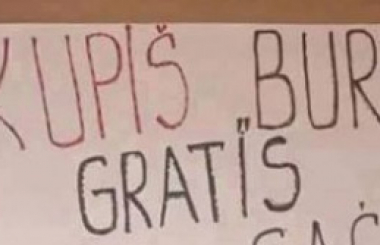 KUPIŠ BUR
GRATIS